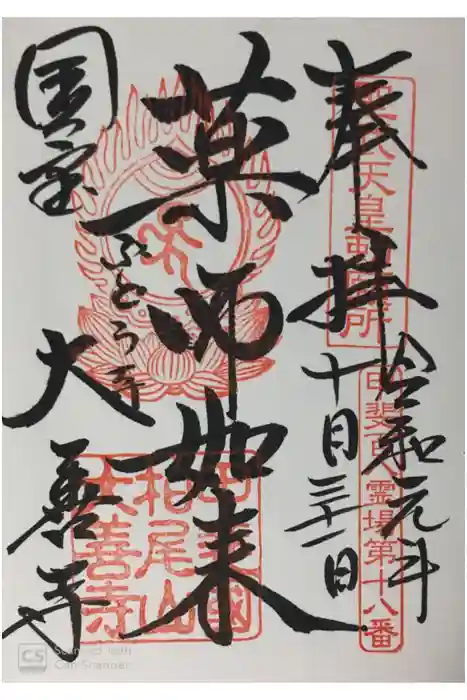 奉拝
令和元年
十月三十一日
聖武天皇勅願所
甲斐百霊場第十八番
薬師如来
国宝
ぶどう寺
大善寺
甲斐國
柏尾山
大善寺
CS Scanned with
CamScanner